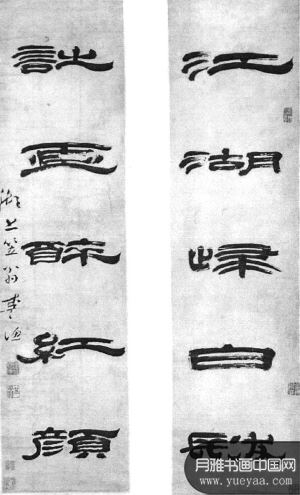 江湖歸白髮
詩畫醉紅顏
湖上笠翁李漁
月雅书画中国网
www.yueyaa.com